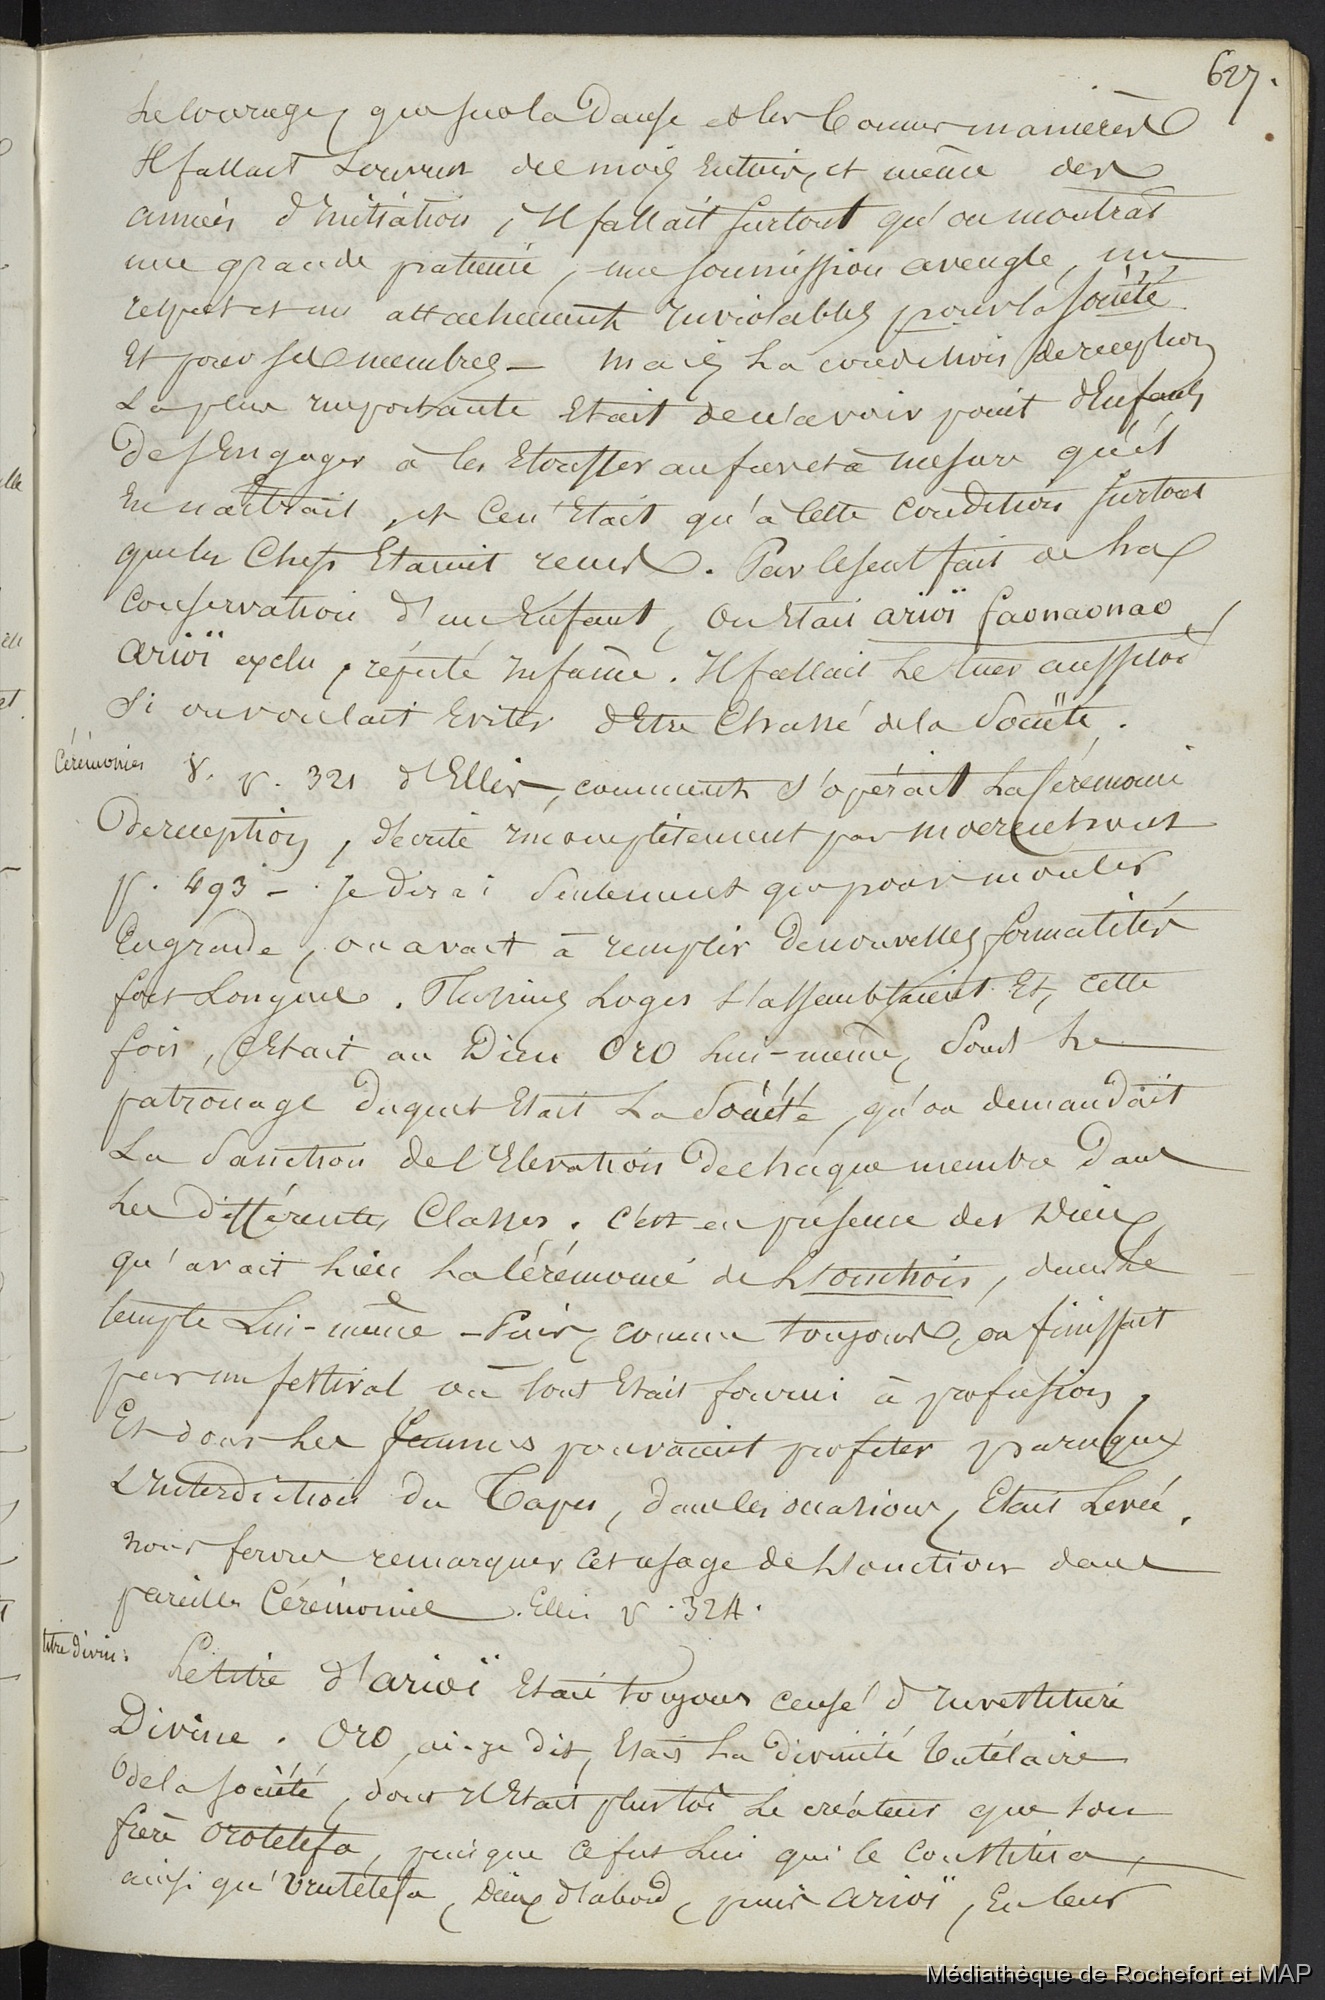 627.
le courage, que sur la Danse et les bonnes manières
Il fallait souvent des mois entiers, et même des
années d'initiation, Il fallait surtout qu'on montrât
une grande patience, une soumission aveugle, un
respect et un attachement inviolables pour la société
Et pour ses membres – mais la condition de reception
La plus importante Etait de n'avoir point d'Enfants,
De s'Engager à les Etouffer au fur et à mesure qu'il
En naîtrait, et ce n'Etait qu'à cette condition surtout
que les Chefs Etaient reçus. Par le seul fait de la
conservation d'un Enfant, on Etait arioï faonaonao,
arioï exclu, réputé infâme. Il fallait le tuer aussitôt
Si on voulait Eviter d'Etre Chassé de la Société.
Cérémonies
V. p. 321 d'Ellis, comment s'opérait la Cérémonie
De reception, décrite incomplètement par moerenhout
p. 493 – Je dirai Seulement que pour monter
En grade, on avait à remplir De nouvelles formalités
fort Longues. Plusieurs Loges s'assemblaient Et, cette
fois, c'Etait au Dieu Oro lui-même, Sous le
patronage Duquel Etait La Société, qu'on demandait
La Sanction de l'Elevation De chaque membre Dans
les Différentes Classes. c'est en présence des Dieux
qu'avait lieu la Cérémonie de l'onction, dans le
temple Lui-même – Puis, comme toujours, on finissait
par un festival où tout Etait fourni à profusion,
Et dont les femmes pouvaient profiter parceque
L'Interdiction du Tapu, dans les occasions, Etait Levée.
nous ferons remarquer cet usage de l'onction dans
pareilles Cérémonies. Ellis p. 324.
titre divin:
Le titre d'arioï Etait toujours censé d'Investiture
Divine. Oro, ai-je dit, Etait la divinité tutélaire
De la société, dont il Etait plustôt le créateur que son
frère Orotetefa, puisque ce fut lui qui le constitua,
ainsi qu'Urutetefa, Dieux d'abord, puis arioï, En leur
Médiathèque de Rochefort et MAP